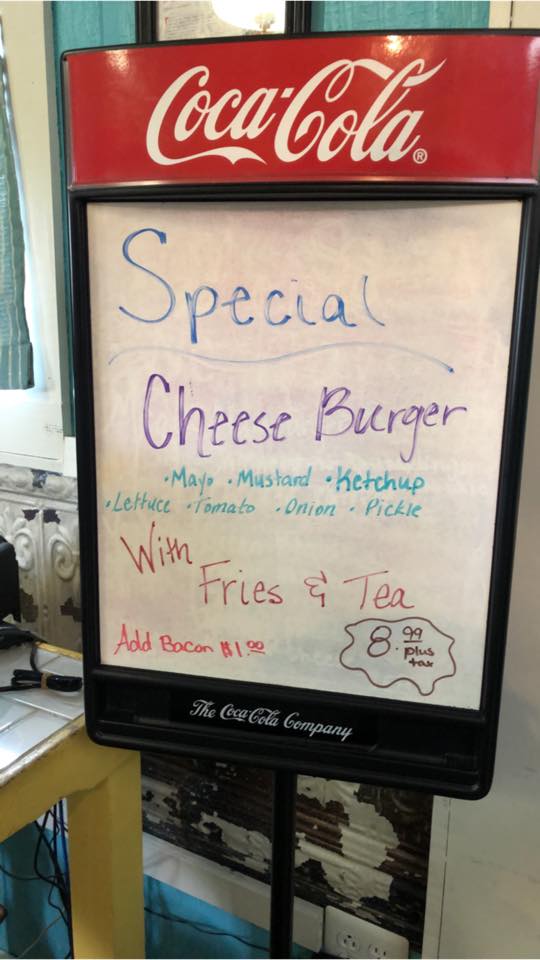 Coca-Cola®
Special
Cheese Burger
•Mayo •Mustard •Ketchup
•Lettuce •Tomato •Onion • Pickle
With
Fries & Tea
Add Bacon $1.00
8.99
plus
tax
The Coca-Cola Company